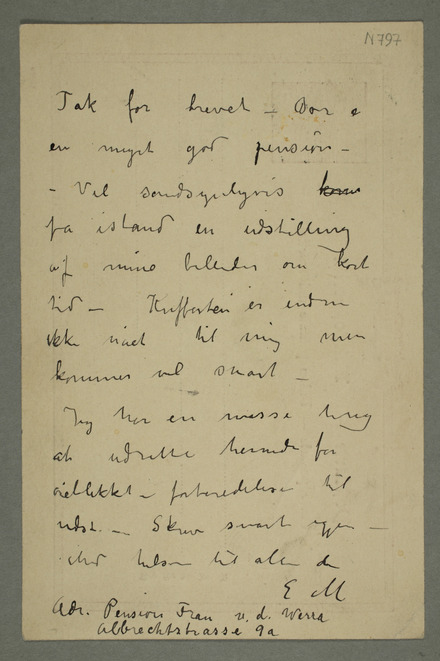 N 797
Tak for brevet – Bor i
en meget god pension –
– Vil sandsynligvis komme
få istand en udstilling
af mine billeder om kort
tid – Kufferten er endnu
ikke nået til mig men
kommer vel snart –
Jeg har en masse ting
at udrette herinde for
øieblikket – forberedelser til
udst. – Skriv snart igjen –
Med hilsen til alle
E M
Adr. Pension Frau v. d. Werra
Albrechtstrasse 9a